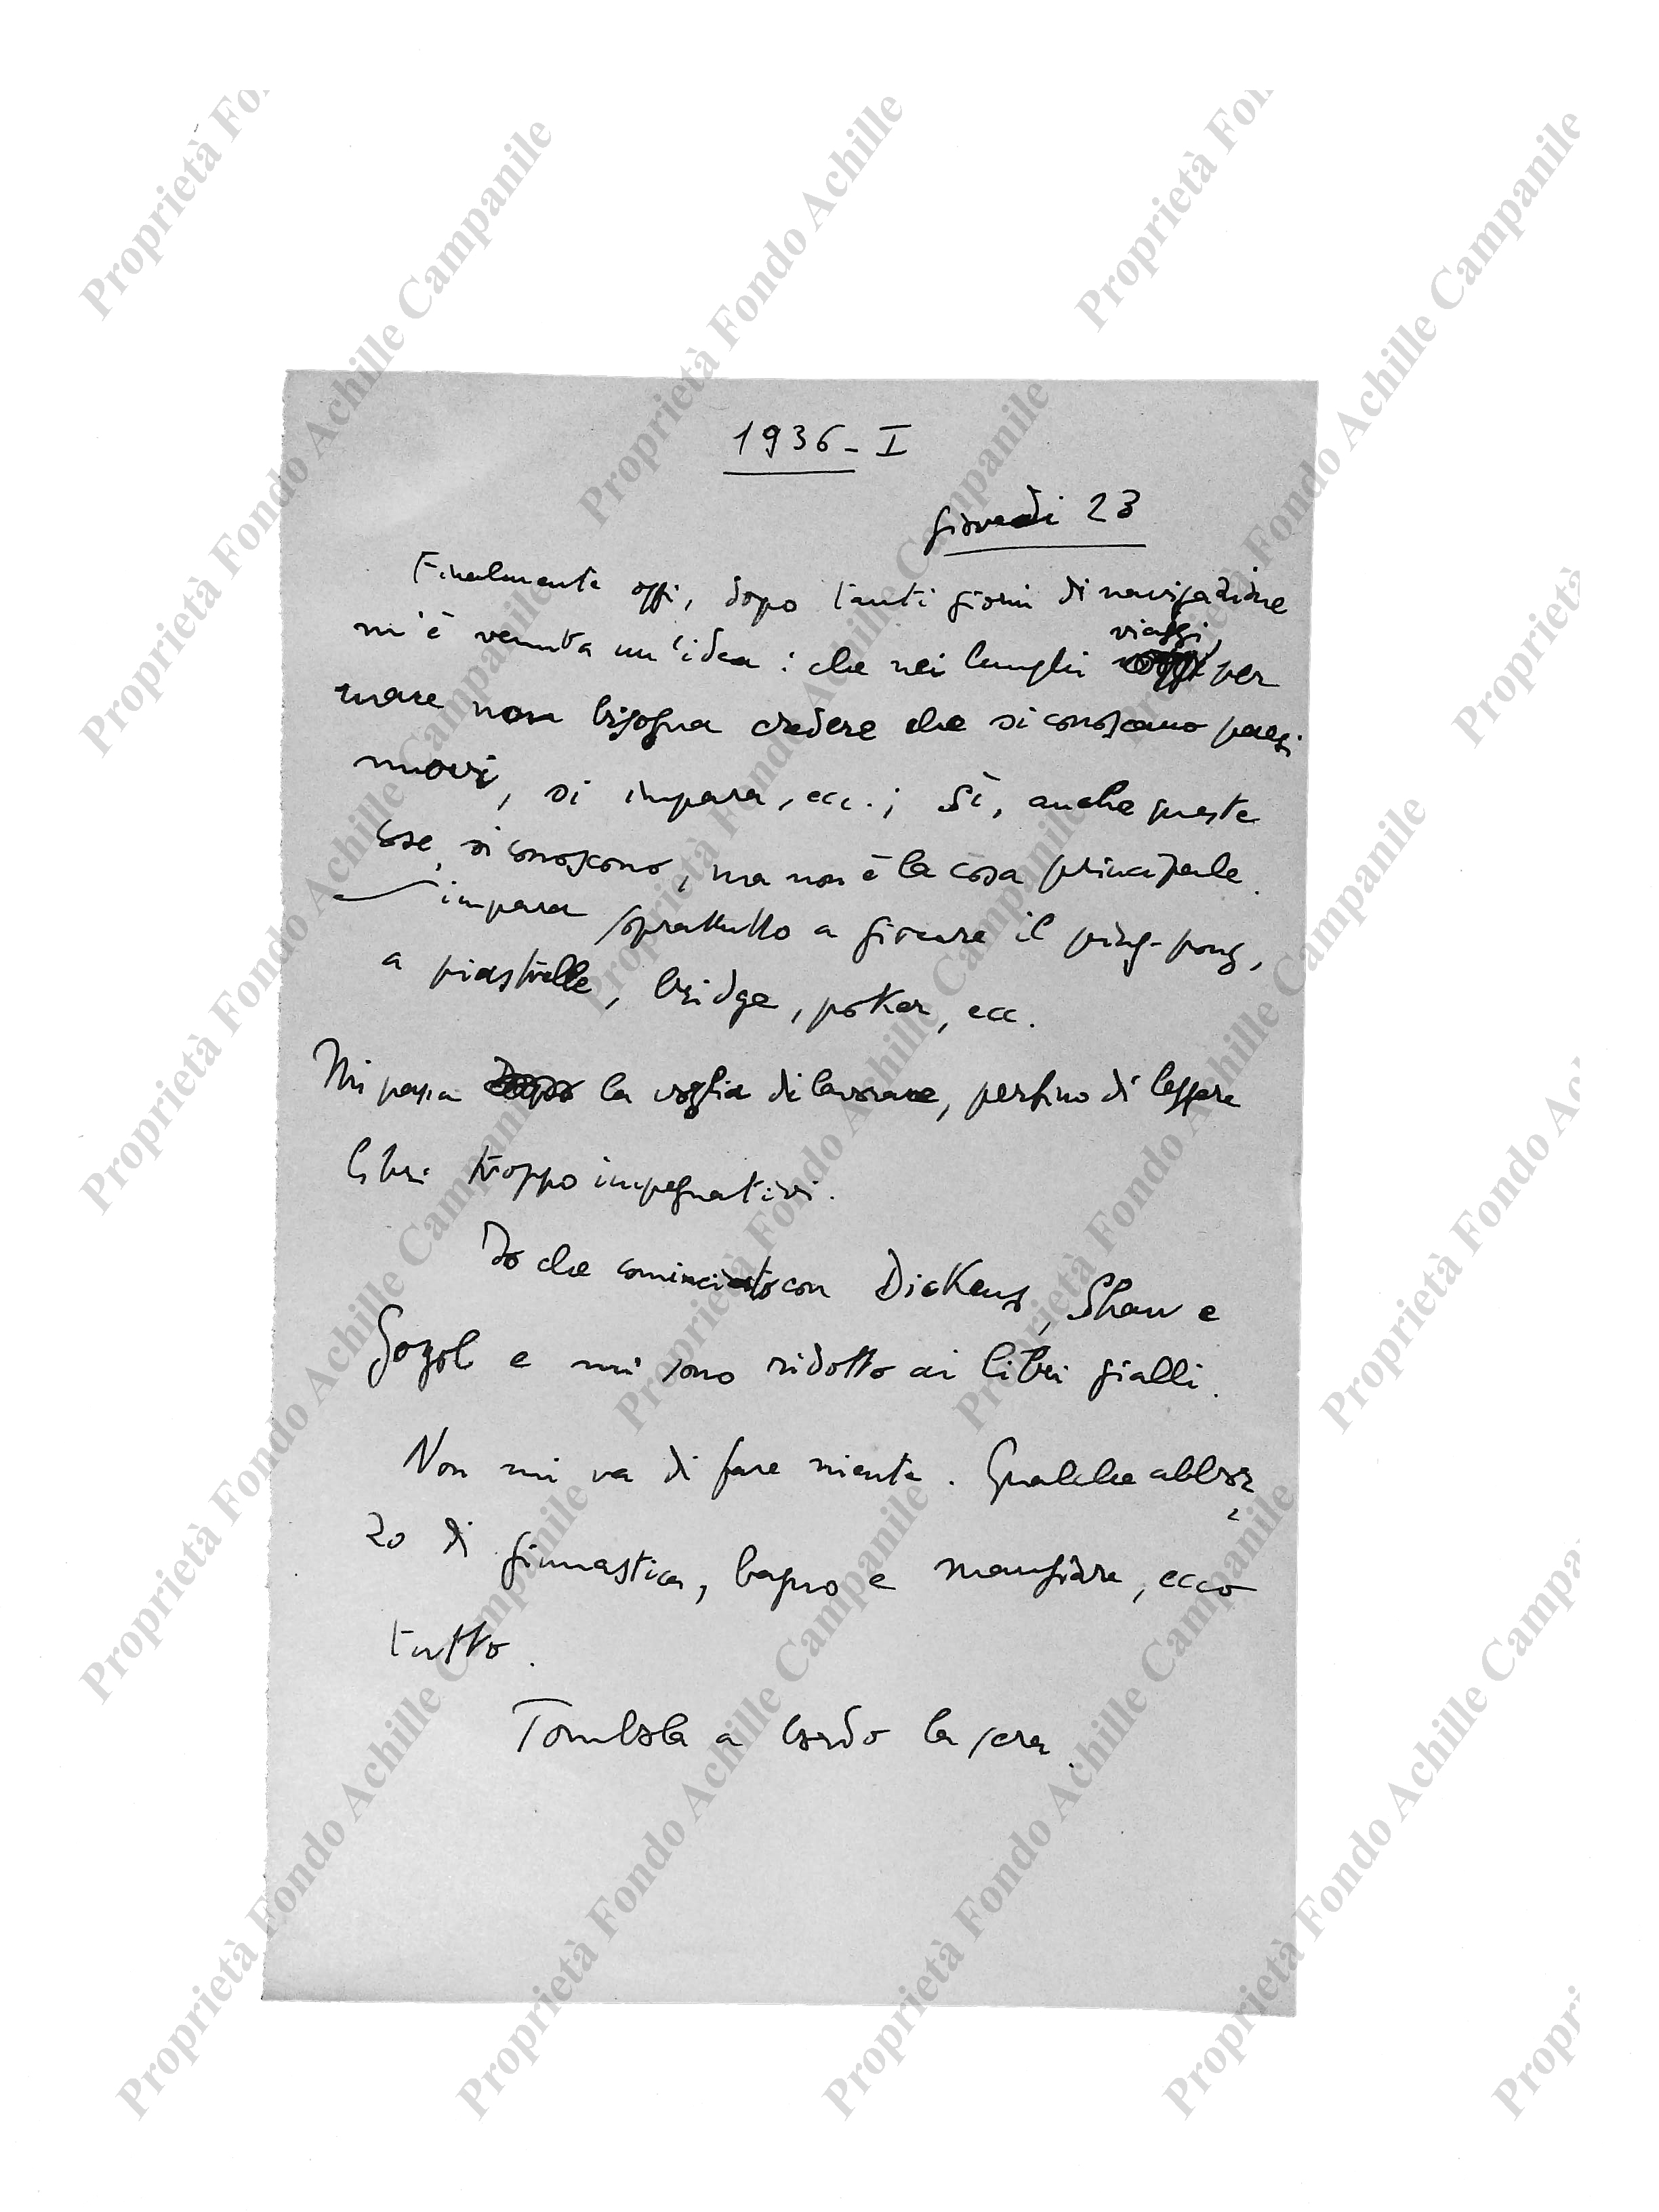 1936 - I
giovedì 23
Finalmente oggi, dopo tanti giorni di navigazione
m'è venuta un'idea: che nei lunghi viaggi, per
mare non bisogna credere che si conoscano paesi
nuovi, si impara, ecc.; Sì, anche queste
cose, si conoscono, ma non è la cosa principale.
impara soprattutto a giocare il ping-pong,
a piastrelle, bridge, poker, ecc.
Mi passa la voglia di lavorare, perfino di leggere
libri troppo impegnativi.
Io che cominciato con Dickens, Shaw e
Gogol e mi sono ridotto ai libri gialli.
Non mi va di fare niente. Qualche abboz
zo di ginnastica, bagno e mangiare, ecco
tutto.
Tombola a bordo la sera.
Proprietà Fondo Achille Campanile